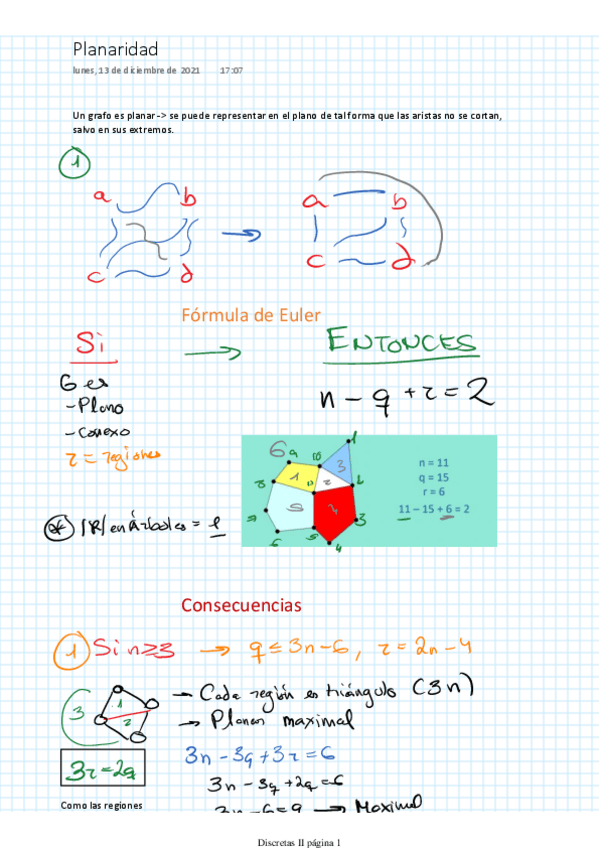 Planaridad
lunes, 13 de diciembre de 2021 17:07
Un grafo es planar -> se puede representar en el plano de tal forma que las aristas no se cortan,
salvo en sus extremos.
1
a b a b
c d c d
Fórmula de Euler
Si → ENTONCES
G es
- Plano
- Conexo
r = regiones
n - q + r = 2
6 9 10 1
8 1 11 2 3 2
7 5 4 3
6 5 4
n = 11
q = 15
r = 6
11 – 15 + 6 = 2
* |R| en Árboles = 1
Consecuencias
1 Si n≥3 → q ≤ 3n-6, r = 2n-4
→ Cada región es triángulo (3n)
→ Planar maximal
3 1 2
3r = 2q
3n - 3q + 3r = 6
3n - 3q + 2q = 6
3n - 6 = q → Maximal
Como las regiones
Discretas II página 1